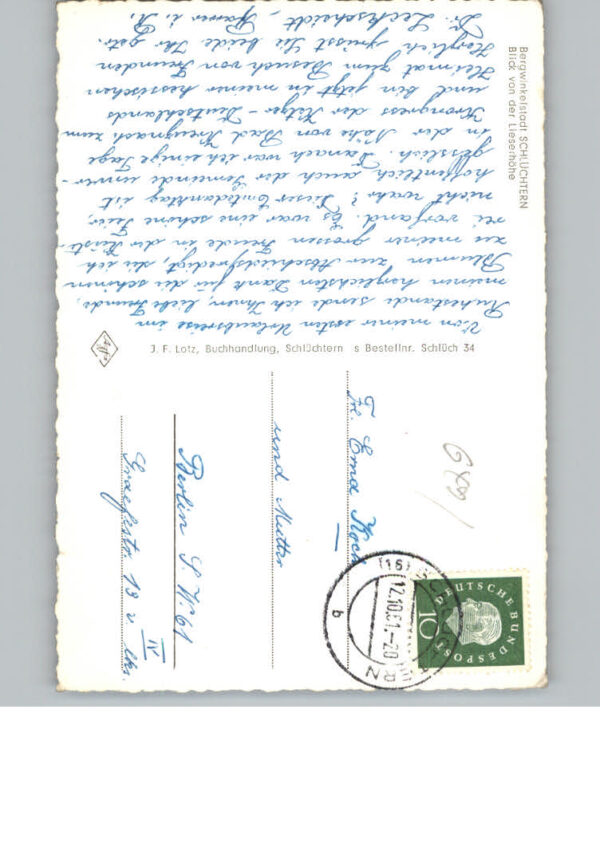 Bergwinkelstadt SCHLÜCHTERN
Blick von der Lieserhöhe
Von meiner ersten Urlaubsreise im
Ruhestande sende ich Ihnen, liebe Freunde,
meinen herzlichsten Dank für die schönen
Blumen zur Abschiedspredigt, die ich
zu meiner grossen Freude in der Küste-
rei vorfand. Es war eine schöne Feier,
nicht wahr? Dieser Erntedanktag ist
hoffentlich auch der Gemeinde unver-
gesslich. Danach war ich einige Tage
in der Nähe von Bad Kreuznach zum
Kongress der - Deutschlands
und bin jetzt in meiner hessischen
Heimat zum Besuch von Freunden
Herzlich grüsst Sie beide Ihr getr.
Dr. Pfarrer i. R.
J. F. Lotz, Buchhandlung, Schlüchtern s Bestellnr. Schlüch 34
Agfa
Fr. Erna Koch
und Mutter
Berlin S.W. 61
Graefestr 13 v. IV lks.
(16) SCHLÜCHTERN
12.10.61.-20
b
DEUTSCHE BUNDESPOST
10